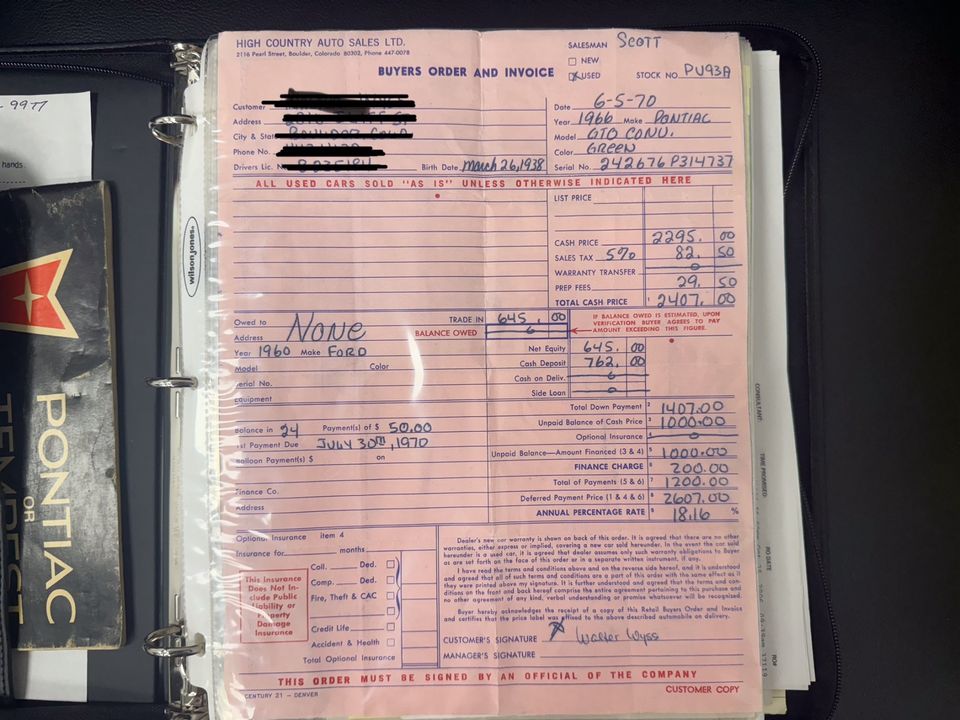 HIGH COUNTRY AUTO SALES LTD.
2116 Pearl Street, Boulder, Colorado 80302, Phone 447-0078
SALESMAN SCOTT
NEW
BUYERS ORDER AND INVOICE
USED STOCK NO. PU93A
Customer
Address
City & State
Phone No.
Drivers Lic. Birth Date March 26, 1938
Date 6-5-70
Year 1966 Make PONTIAC
Model GTO CONV.
Color GREEN
Serial No. 242676P314737
ALL USED CARS SOLD "AS IS" UNLESS OTHERWISE INDICATED HERE
LIST PRICE
CASH PRICE 2295. 00
SALES TAX 5% 82. 50
WARRANTY TRANSFER 0
PREP FEES 29. 50
TOTAL CASH PRICE 1 2407. 00
Owed to NONE
Address
Year 1960 Make FORD
Model Color
erial No.
quipment
TRADE IN 645. 00
BALANCE OWED 0
IF BALANCE OWED IS ESTIMATED, UPON
VERIFICATION BUYER AGREES TO PAY
AMOUNT EXCEEDING THIS FIGURE.
Net Equity 645. 00
Cash Deposit 762. 00
Cash on Deliv. 0
Side Loan 0
Balance in 24 Payment(s) of $ 50.00
st Payment Due JULY 30TH, 1970
alloon Payment(s) $ on
Finance Co.
Address
Total Down Payment 2 1407.00
Unpaid Balance of Cash Price 3 1000.00
Optional Insurance 4 0
Unpaid Balance—Amount Financed (3 & 4) 5 1000.00
FINANCE CHARGE 6 200.00
Total of Payments (5 & 6) 7 1200.00
Deferred Payment Price (1 & 4 & 6) 8 2607.00
ANNUAL PERCENTAGE RATE 9 18.16 %
Optional Insurance item 4
Insurance for months
This Insurance
Does Not In-
clude Public
Liability or
Property
Damage
Insurance
Coll. Ded.
Comp. Ded.
Fire, Theft & CAC
Credit Life
Accident & Health
Total Optional Insurance
Dealer's new car warranty is shown on back of this order. It is agreed there are no other
warranties, either express or implied, covering a new car sold hereunder. In the event the car sold
hereunder is a used car, it is agreed dealer assumes only such warranty obligations to Buyer
as are set forth on the face of this order or in a separate written instrument, if any.
I have read the terms and conditions above and on the reverse side hereof, and it is understood
and agreed that all of such terms and conditions are a part of this order with the same effect as if
they were printed above my signature. It is further understood and agreed that the terms and con-
ditions on the front and back hereof comprise the entire agreement pertaining to this purchase and
no other agreement of any kind, verbal understanding or promise whatsoever will be recognized.
Buyer hereby acknowledges the receipt of a copy of this Retail Buyers Order and Invoice
and certifies that the price label was affixed to the above described automobile on delivery.
CUSTOMER'S SIGNATURE X Walter Wyss
MANAGER'S SIGNATURE
THIS ORDER MUST BE SIGNED BY AN OFFICIAL OF THE COMPANY
CENTURY 21 – DENVER
CUSTOMER COPY
- 9977
hands
wilson jones
PONTIAC
OR
TEMPEST
CONSULTANT:
TIME PROMISED
PO DATE
RO#